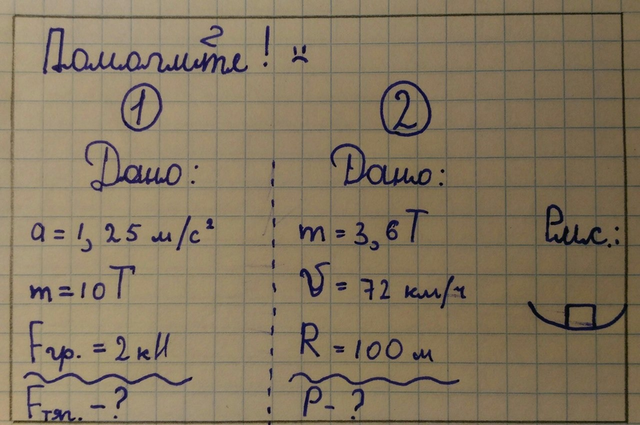 Помогите! :(
1
Дано:
a = 1,25 м/с²
m = 10 Т
Fтр. = 2 кН
Fтяг. - ?
2
Дано:
m = 3,6 Т
V = 72 км/ч
R = 100 м
P - ?
Рис.: